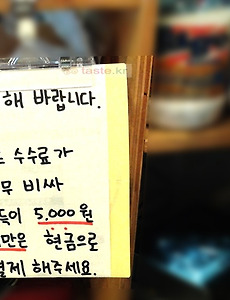 taste.kr
해 바랍니다.
수수료가
무 비싸
득이 5,000원
만은 현금으로
결제 해주세요.